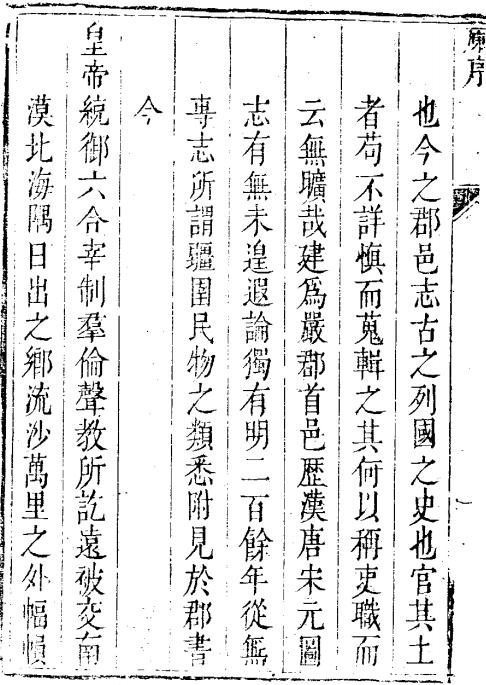 原序
也今之郡邑志古之列國之史也官其土
者苟不詳慎而蒐輯之其何以稱吏職而
云無曠哉建爲嚴郡首邑歷漢唐宋元圖
志有無未遑遐論獨有明二百餘年從無
專志所謂疆圉民物之類悉附見於郡書
今
皇帝統御六合宰制羣倫聲教所訖遠被交南
漠北海隅日出之鄉流沙萬里之外幅幀